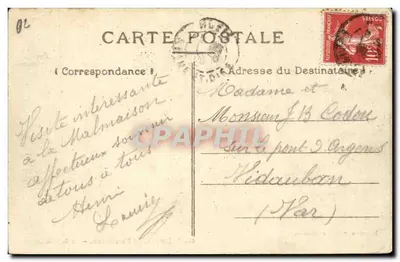 02
CARTE POSTALE
( Correspondance )
Adresse du Destinataire
Visite intéressante
à la Malmaison
affectueux souvenir
de tous à tous
Henri
Madame et
Monsieur J B Codou
sur le pont d'Argens
Vidauban
(Var)
CPAPHIL
10